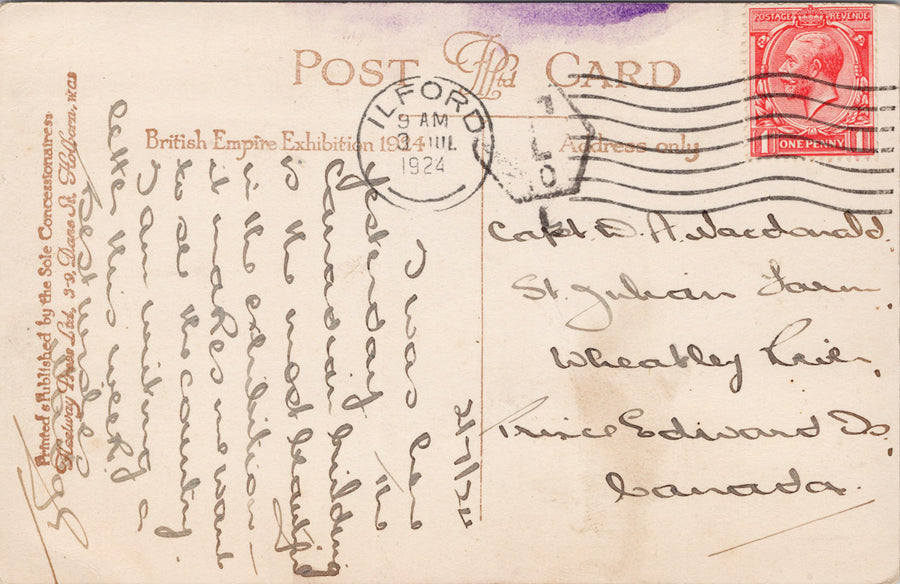 POST CARD
British Empire Exhibition 1924
Address only
POSTAGE REVENUE
1 ONE PENNY 1
ILFORD
9 AM
3 JUL
1924
Capt D. A. Macdonald.
St. Julian Farm,
Wheatley River,
Prince Edward Is
Canada.
2/7/24
I was here
yesterday. The
Canadian building
is the most beautiful
in the exhibition –
it makes me want
to see the country.
I am writing a
letter this week.
Best wishes
Printed & Published by the Sole Concessionaires
Fleetway Press Ltd, 3-9, Dane St, Holborn, W.C.1